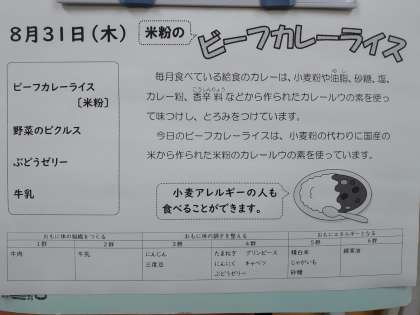 8月31日(木)
米粉の
ビーフカレーライス
ビーフカレーライス
[米粉]
野菜のピクルス
ぶどうゼリー
牛乳
毎月食べている給食のカレーは、小麦粉や油脂、砂糖、塩、
カレー粉、香辛料などから作られたカレールウの素を使っ
て味つけし、とろみをつけています。
今日のビーフカレーライスは、小麦粉の代わりに国産の
米から作られた米粉のカレールウの素を使っています。
小麦アレルギーの人も
食べることができます。
おもに体の組織をつくる おもに体の調子を整える おもにエネルギーとなる
1群 2群 3群 4群 5群 6群
牛肉 牛乳 にんじん たまねぎ グリンピース 精白米
三度豆 にんにく キャベツ じゃがいも
ぶどうゼリー 砂糖